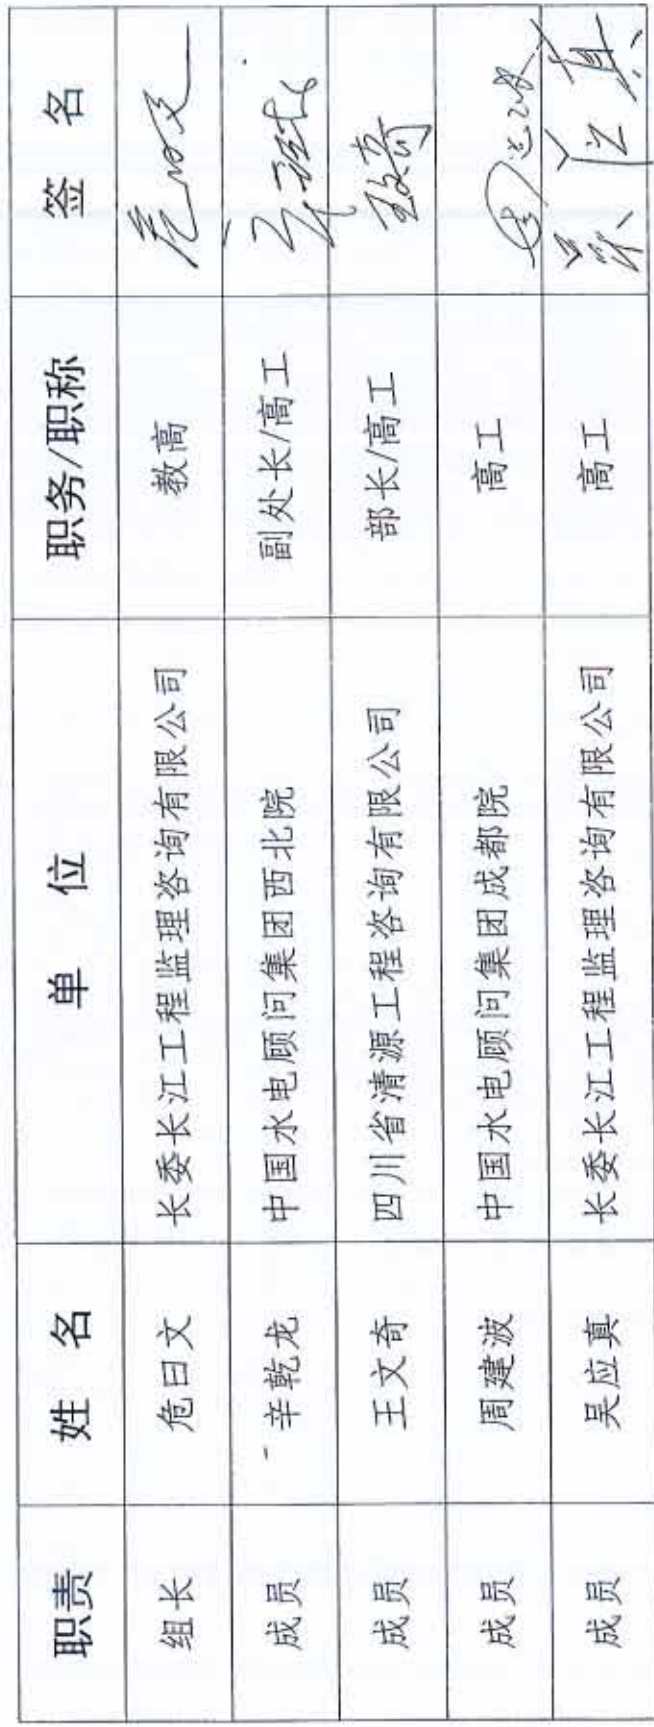 职责 姓 名 单 位 职务/职称 签 名
组长 危日文 长委长江工程监理咨询有限公司 教高 危日文
成员 辛乾龙 中国水电顾问集团西北院 副处长/高工
成员 王文奇 四川省清源工程咨询有限公司 部长/高工
成员 周建波 中国水电顾问集团成都院 高工 周建波
成员 吴应真 长委长江工程监理咨询有限公司 高工 吴应真